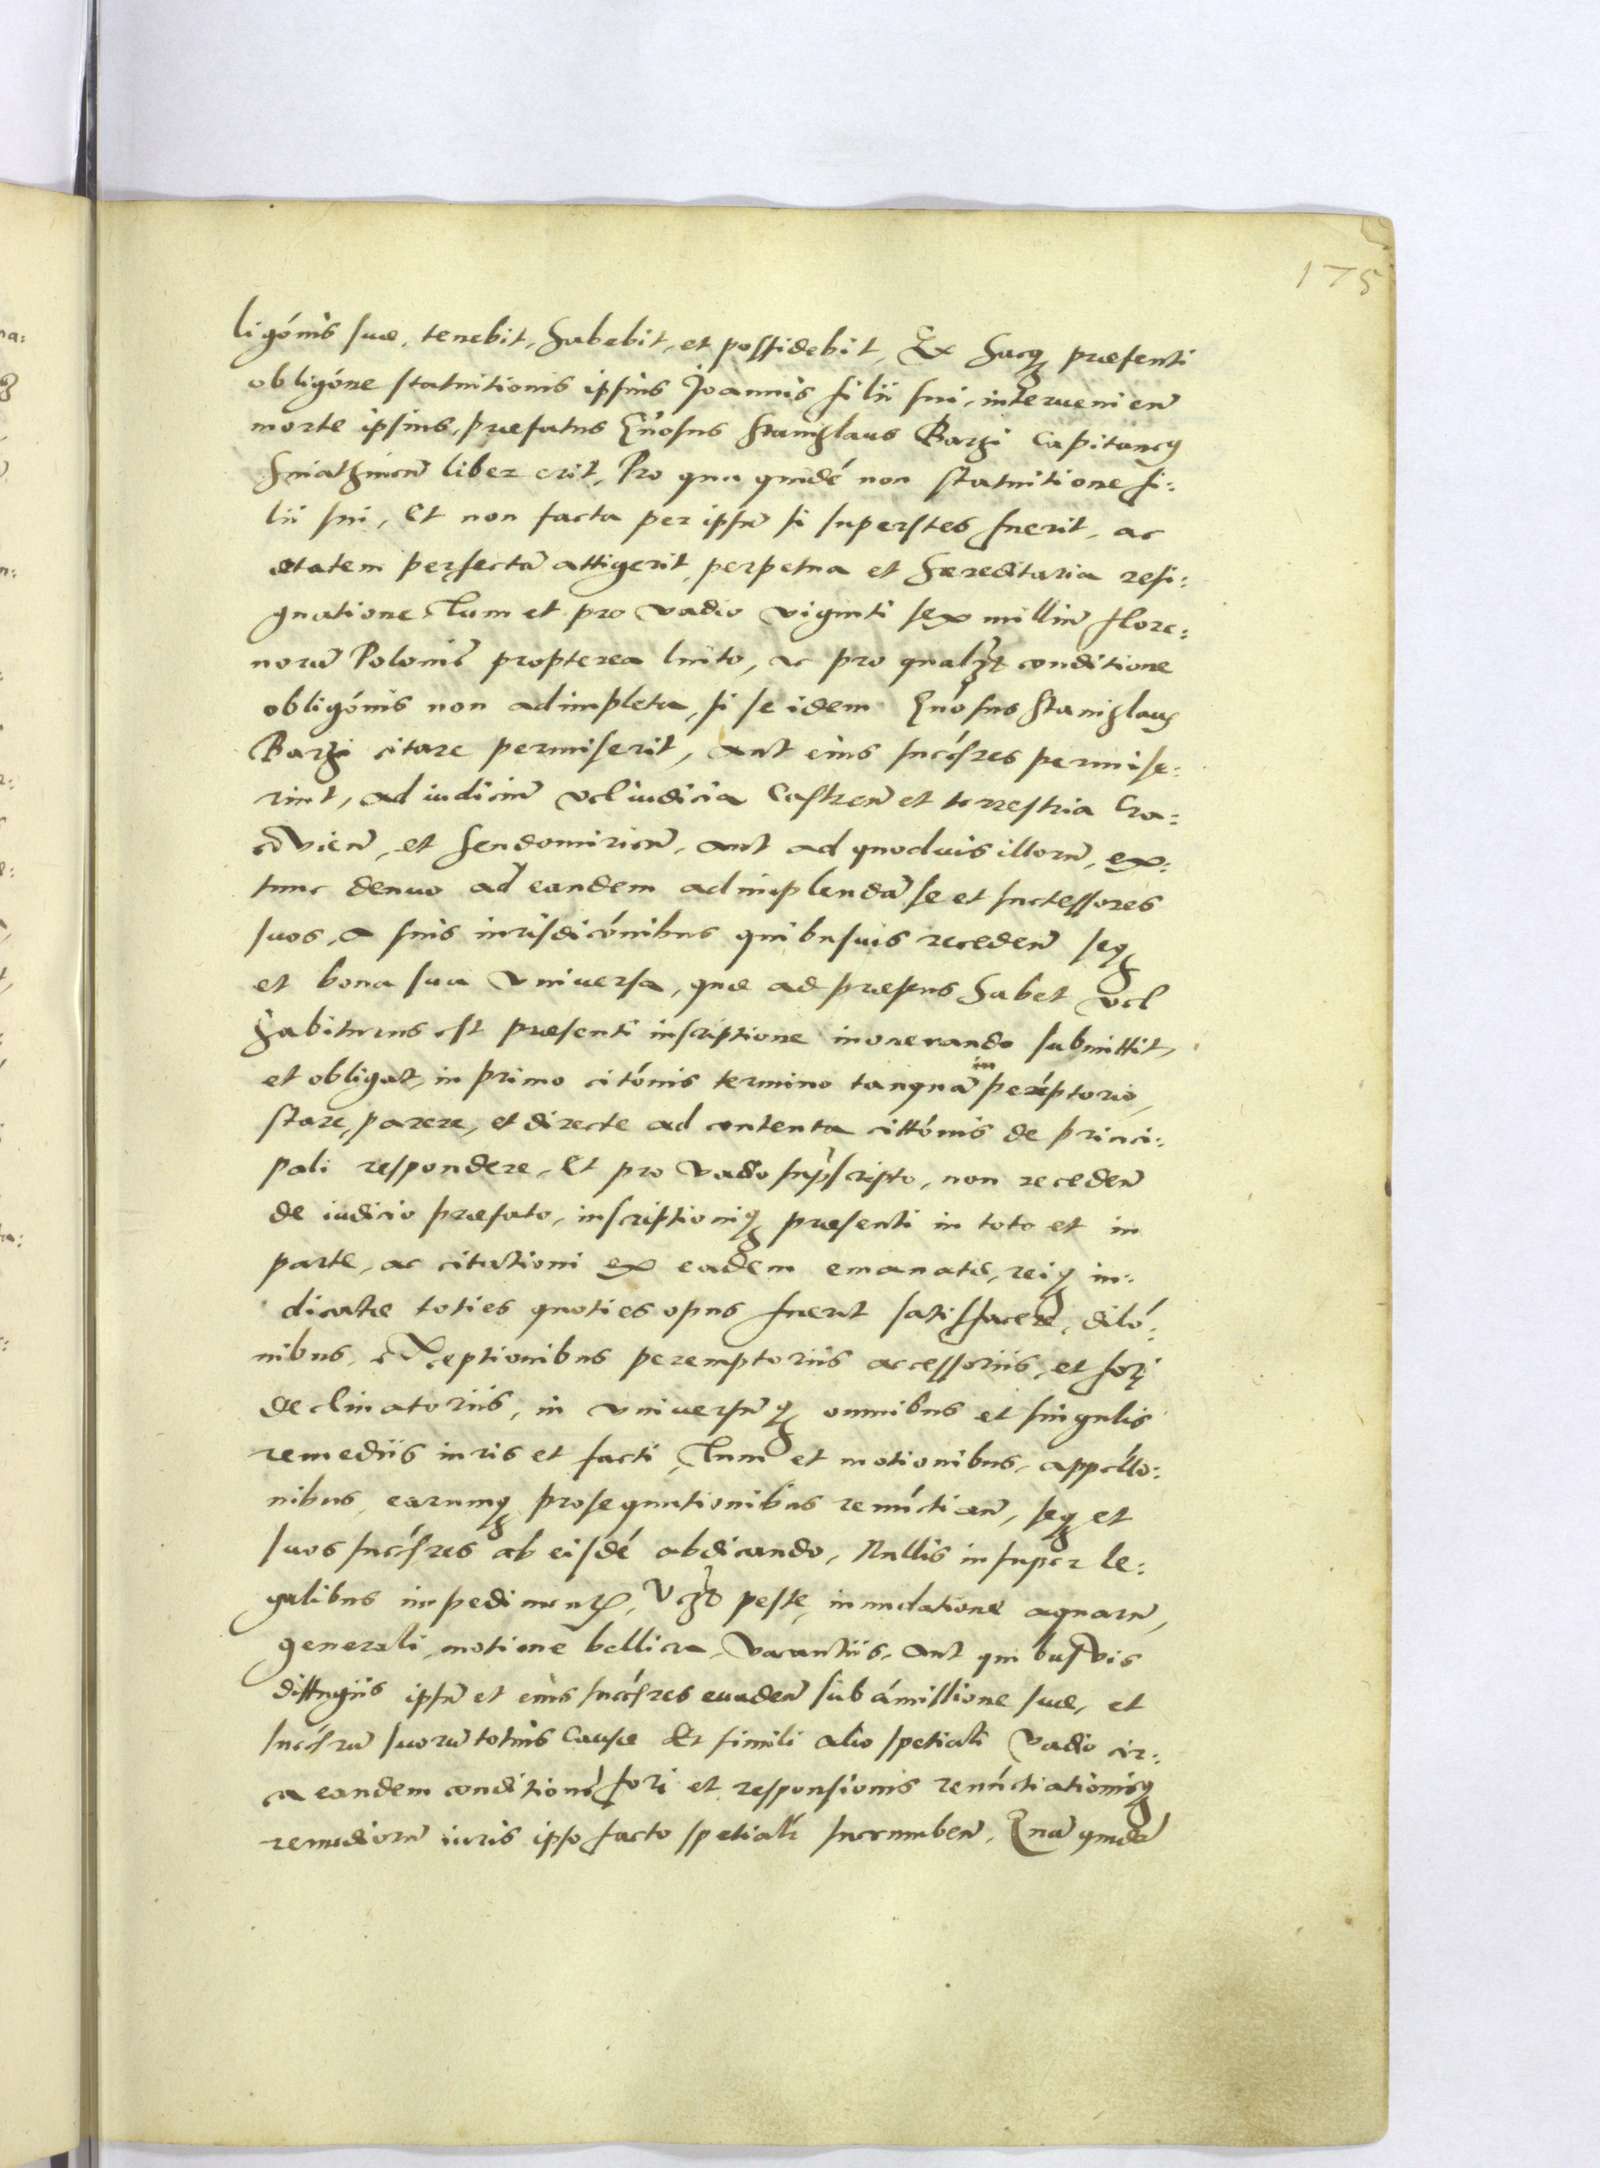 175
ligónis suæ, tenebit, habebit, et possidebit, Ex hacq præsenti
obligóne statuitionis ipsius Joannis filii sui, intervenien
morte ipsius, præfatus Gnosus Stanislaus Barzi Capitaneus
Sniatinien liber erit, Pro qua quidé non statuitione fi:
lii sui, Et non facta per ipsum si superstes fuerit, ac
ætatem perfectã attigerit, perpetua et hæreditaria resi:
gnatione. Tum et pro vadio viginti sex millium flore:
norũ Polonis propterea luito, ac pro qualzt conditione
obligónis non adimpleta, si se idem Gnosus Stanislaus
Barzi citare permiserit, aut eius succsres permise:
rint, ad iudicium vel iudicia Castren et terrestria Cra:
covien, et Sendomirien, aut ad quoduis illorũ, ex:
tunc denuo ad eandem adimplendã se et successores
suos, a suis iurisdicónibus quibusuis receden seq
et bona sua vniuersa, quæ ad præsens habet vel
habiturus est præsenti inscriptione inonerando submittit,
et obligat, in primo citónis termino tanquã peréptorio,
stare, parere, et directe ad contenta cittónis de princi:
pali respondere, Et pro vadio supscripto, non receden
de iudicio præfato, inscriptioniq præsenti in toto et in
parte, ac citationi ex eadem emanatæ, reiq iu:
dicatæ toties quoties opus fuerit satisfacere, diló:
nibus, exceptionibus peremptoriis accessoriis, et fori
declinatoriis, in vniuersũq omnibus et singulis
remediis iuris et facti, Tum et motionibus, appello:
nibus, earumq prosequutionibus renúctian, seq et
suos succsres ab eisdé abdicando, Nullis insuper le:
galibus impedimentis, vzt peste, inundatione aquarũ,
generali, motione bellica, vacantiis, aut quibusvis
diffugiis ipsũ et eius succsres euaden sub ámissione suæ, et
succsrũ suorũ totius causæ Et simili alio spetiali vadio cir:
ca eandem conditioné fori et responsionis renúctiationisq
remediorũ iuris ipso facto spetiali succumben, Quã quidẽ